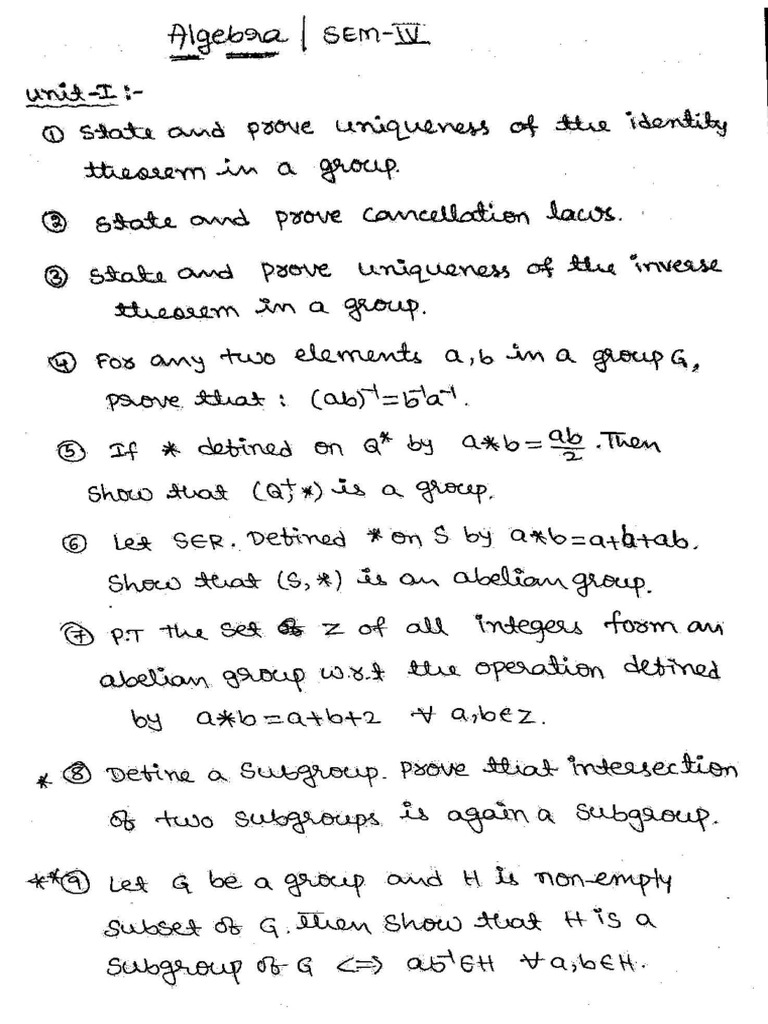 Algebra | SEM-IV
Unit-I :-
① State and prove uniqueness of the identity
theorem in a group.
② State and prove cancellation laws.
③ State and prove uniqueness of the inverse
theorem in a group.
④ For any two elements a,b in a group G,
prove that : (ab)⁻¹=b⁻¹a⁻¹.
⑤ If * defined on Q* by a*b = ab/2 . Then
show that (Q⁺,*) is a group.
⑥ Let SER. Defined * on S by a*b=a+b+ab.
Show that (S,*) is an abelian group.
⑦ P.T the set of Z of all integers form an
abelian group w.r.t the operation defined
by a*b=a+b+2 ∀ a,b∈Z.
* ⑧ Define a Subgroup. Prove that intersection
of two subgroups is again a subgroup.
**⑨ Let G be a group and H is non-empty
subset of G. Then show that H is a
subgroup of G <=> ab⁻¹∈H ∀a,b∈H.